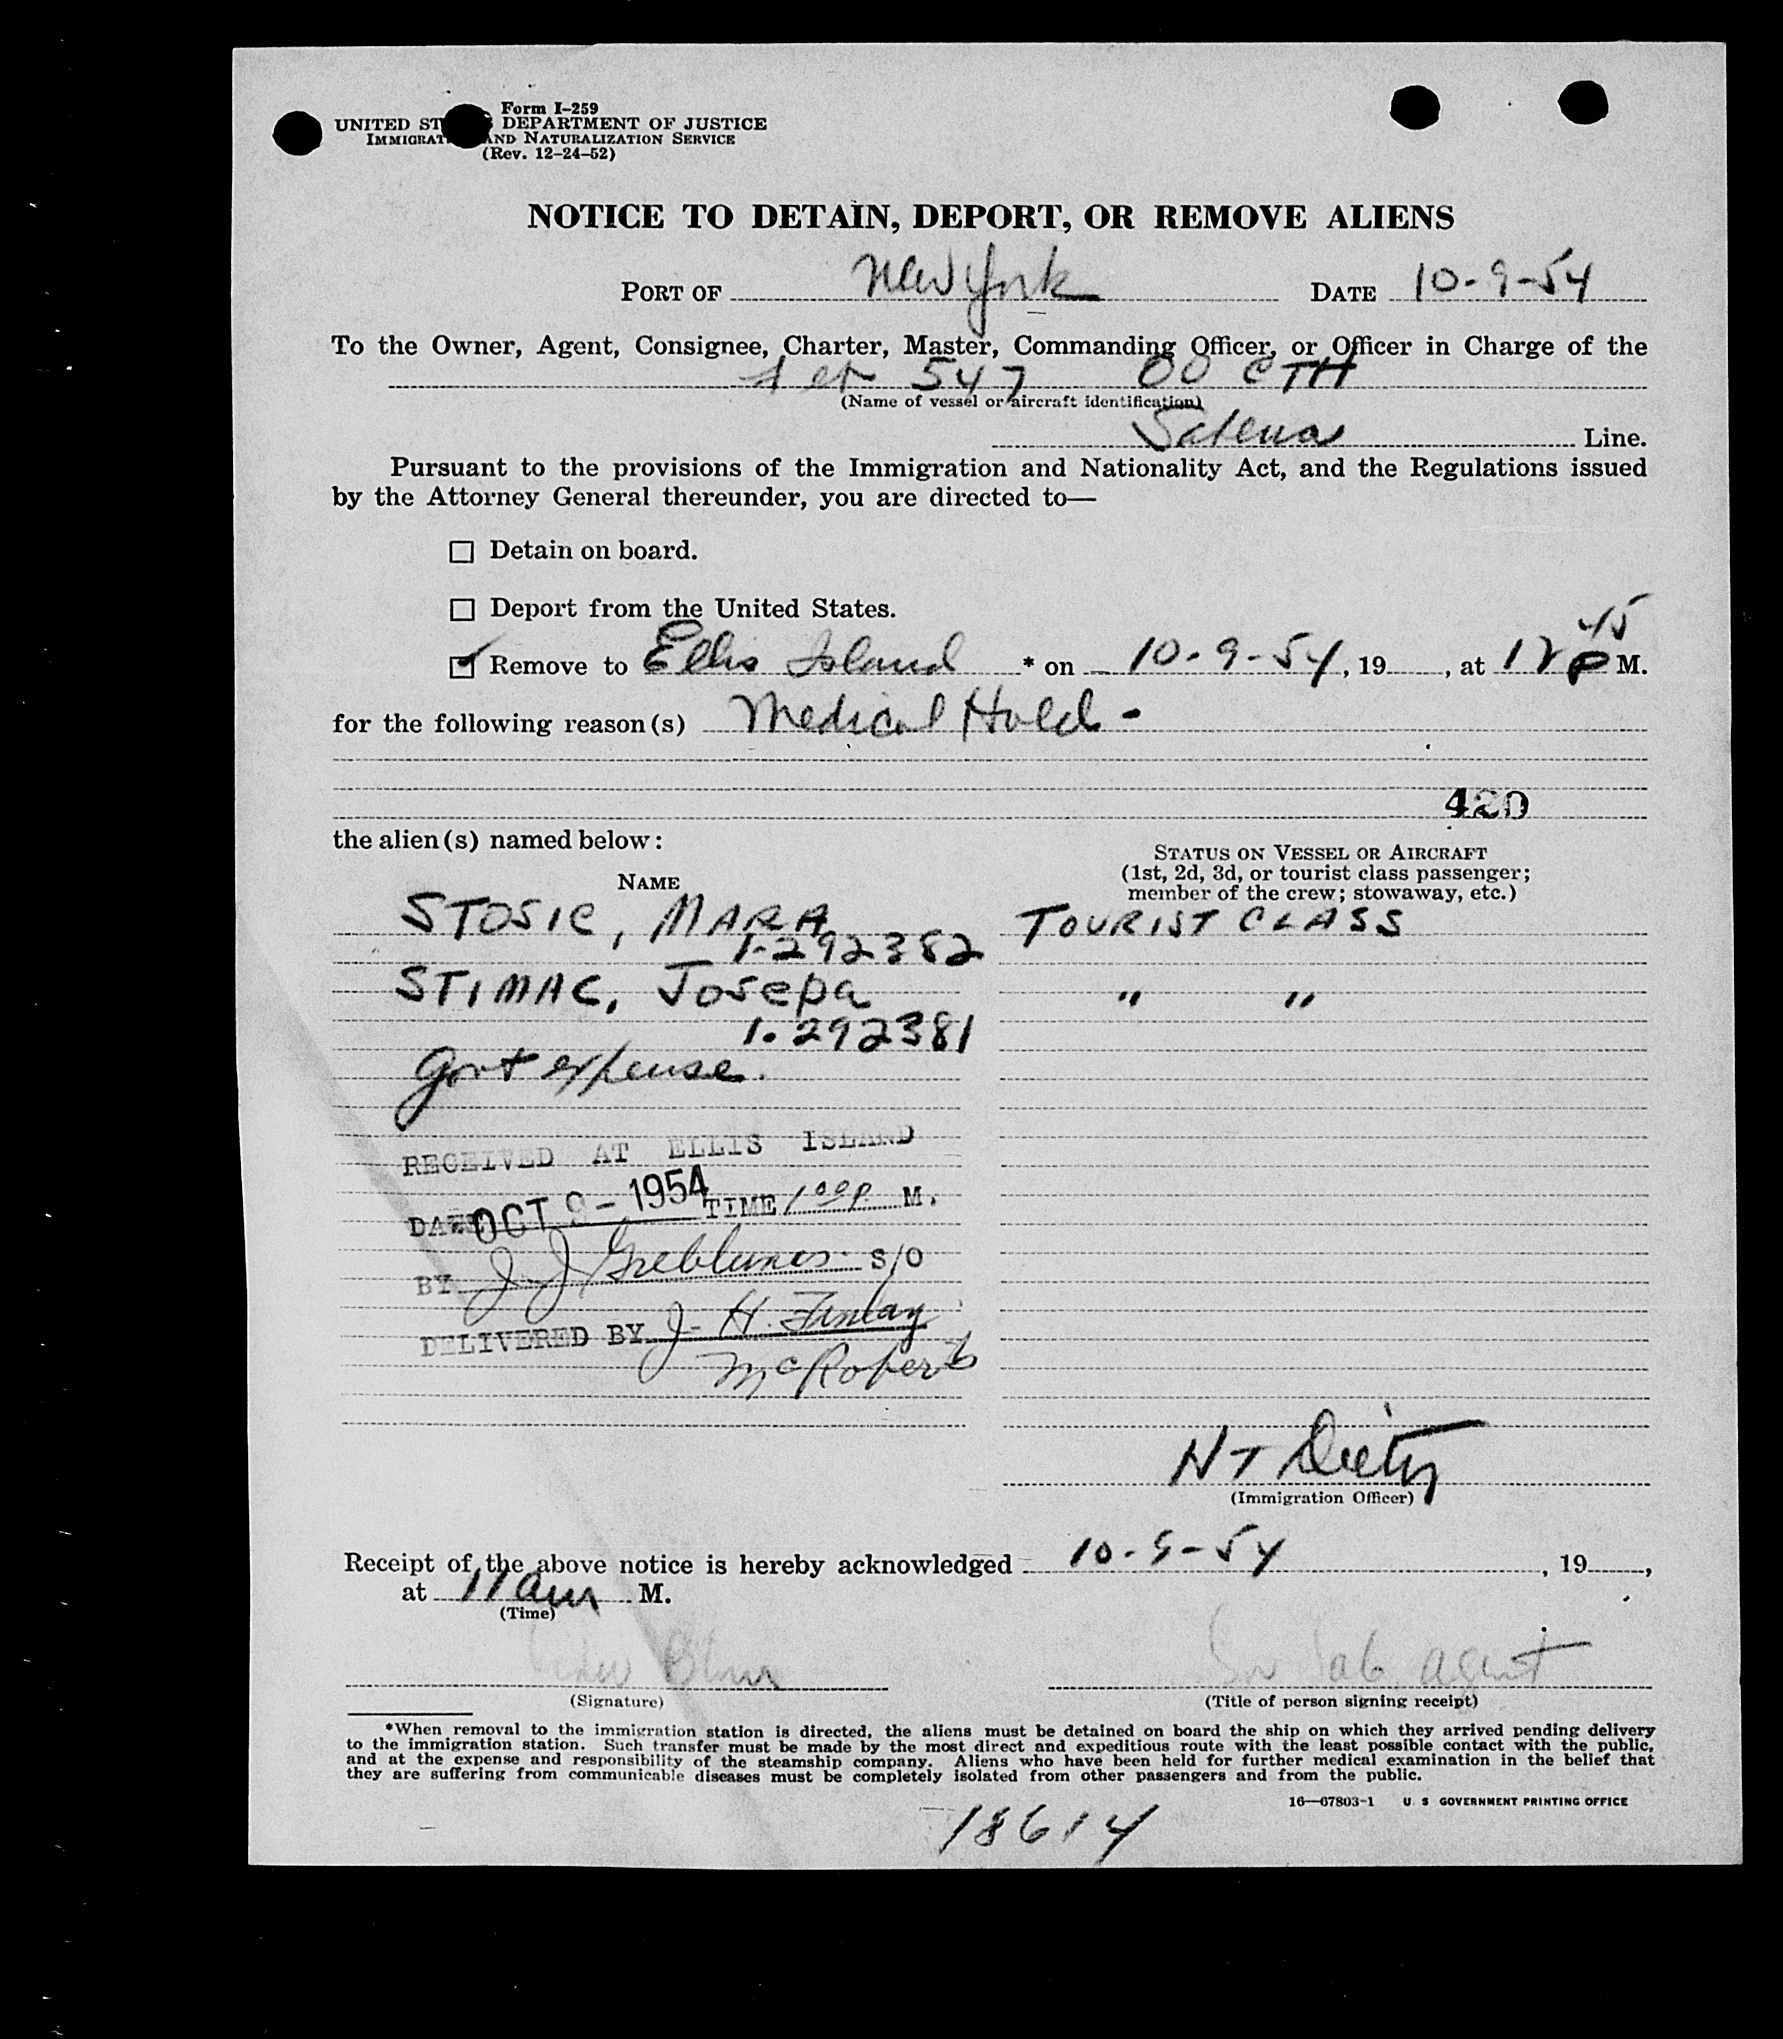 Form I-259
UNITED ST S DEPARTMENT OF JUSTICE
IMMIGRAT AND NATURALIZATION SERVICE
(Rev. 12-24-52)
NOTICE TO DETAIN, DEPORT, OR REMOVE ALIENS
PORT OF New York DATE 10-9-54
To the Owner, Agent, Consignee, Charter, Master, Commanding Officer, or Officer in Charge of the
547 OO CTH
(Name of vessel or aircraft identification)
Line.
Pursuant to the provisions of the Immigration and Nationality Act, and the Regulations issued
by the Attorney General thereunder, you are directed to—
Detain on board.
Deport from the United States.
Remove to Ellis Island * on 10-9-54, 19 , at 12 45 P M.
for the following reason(s) Medical Hold -
420
the alien(s) named below:
STATUS ON VESSEL OR AIRCRAFT
(1st, 2d, 3d, or tourist class passenger;
member of the crew; stowaway, etc.)
NAME
STOSIC, MARA TOURIST CLASS
1-292382
STIMAC, Josepa " "
1.292381
Govt expense.
RECEIVED AT ELLIS ISLAND
DATE OCT 9-1954 TIME 1 00 P M.
BY J. J. S/O
DELIVERED BY J. H. Finlay
McRoberts
HT Dietz
(Immigration Officer)
Receipt of the above notice is hereby acknowledged 10-9-54, 19 ,
at 11 am M.
(Time)
agent
(Signature) (Title of person signing receipt)
*When removal to the immigration station is directed, the aliens must be detained on board the ship on which they arrived pending delivery
to the immigration station. Such transfer must be made by the most direct and expeditious route with the least possible contact with the public,
and at the expense and responsibility of the steamship company. Aliens who have been held for further medical examination in the belief that
they are suffering from communicable diseases must be completely isolated from other passengers and from the public.
16—67803-1 U. S. GOVERNMENT PRINTING OFFICE
18614